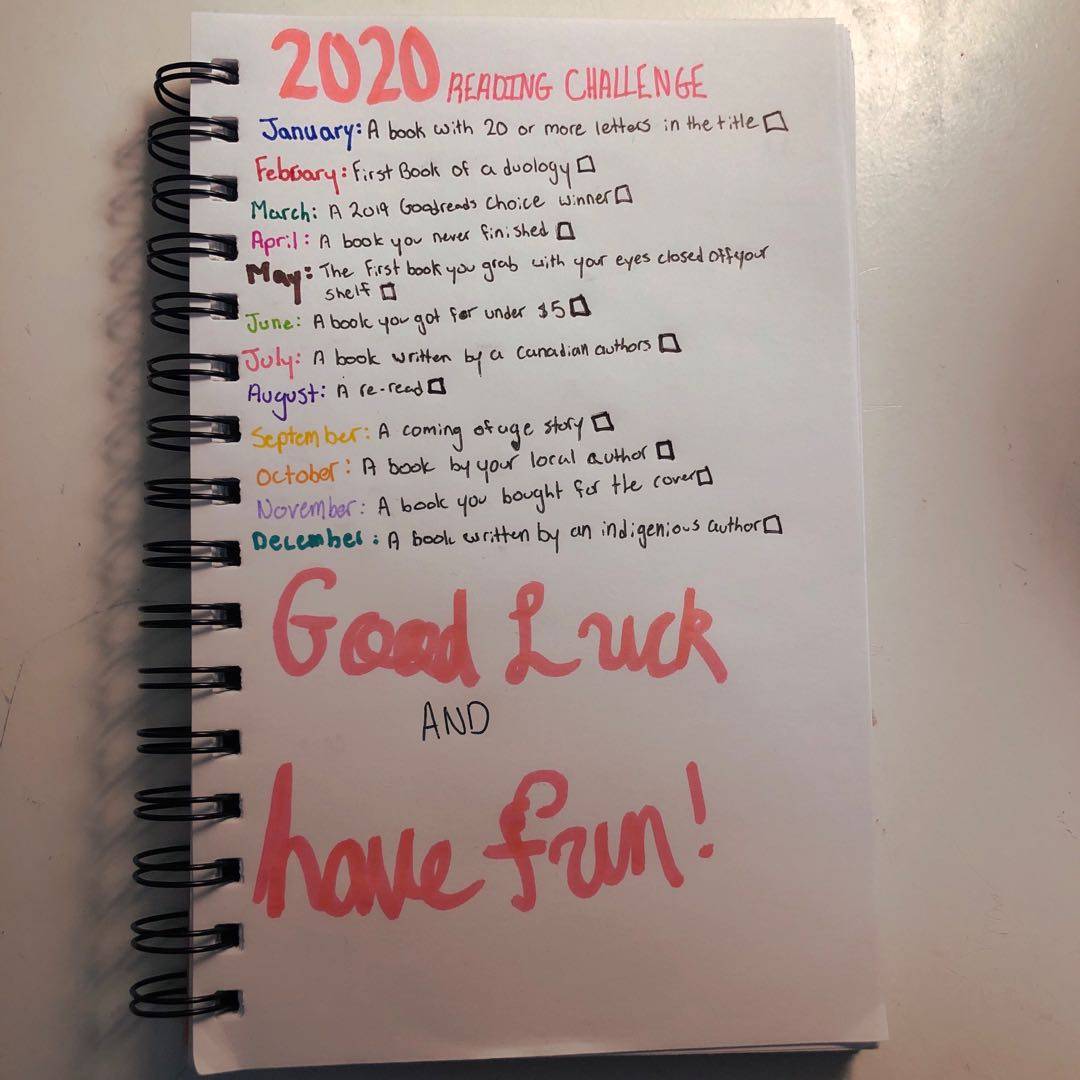 2020 READING CHALLENGE
January: A book with 20 or more letters in the title
February: First Book of a duology
March: A 2019 Goodreads Choice winner
April: A book you never finished
May: The first book you grab with your eyes closed off your
shelf
June: A book you got for under $5
July: A book written by a Canadian authors
August: A re-read
September: A coming of age story
October: A book by your local author
November: A book you bought for the cover
December: A book written by an indigenious author
Good Luck
AND
have fun!